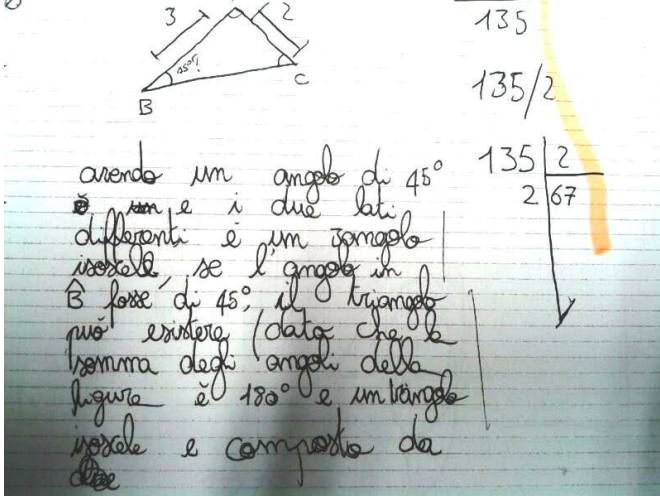 3
2
45°?
B
C
135
135/2
135 | 2
2 | 67
avendo un angolo di 45°
e i due lati
differenti è un
isoscele, se l'angolo in
B̂ fosse di 45°, il triangolo
può esistere (dato che la
somma degli angoli della
figura è 180° e un triangolo
isoscele e composto da